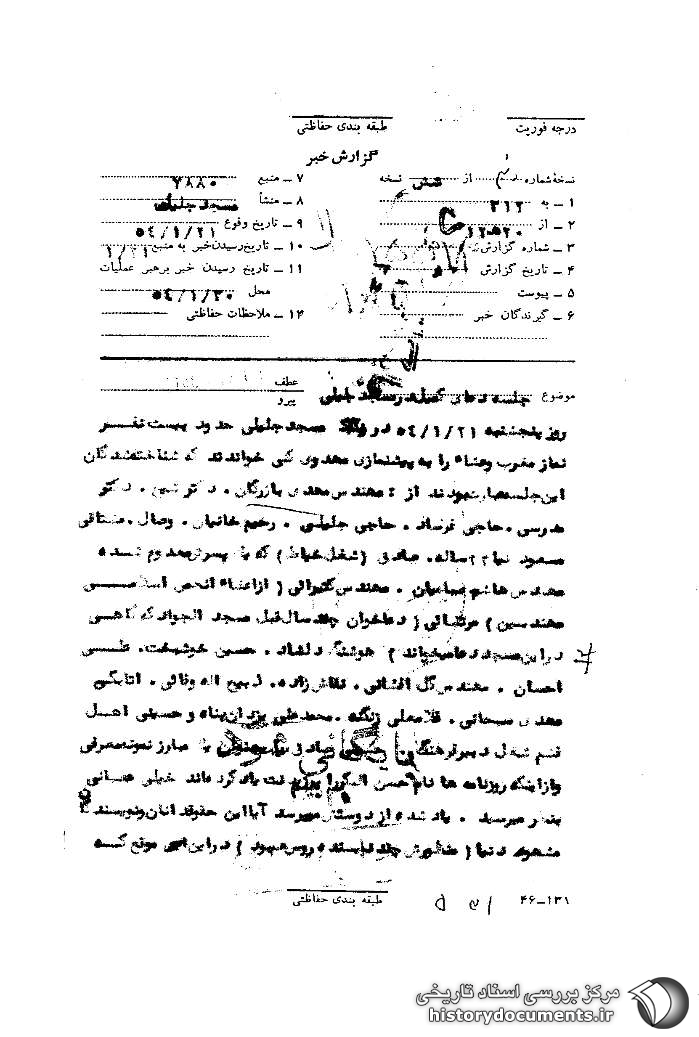 درجه فوریت
طبقه بندی حفاظتی
گزارش خبر
نسخهٔ شماره از شش نسخه
۱ ـ به ۳۱۲
۲ ـ از
۳ ـ شماره گزارش
۴ ـ تاریخ گزارش
۵ ـ پیوست
۶ ـ گیرندگان خبر
۷ ـ منبع ۷۸۸۰
۸ ـ منشأ مسجد جلیلی
۹ ـ تاریخ وقوع ۵۴/۱/۲۱
۱۰ ـ تاریخ رسیدن خبر به منبع ۱/۲۱
۱۱ ـ تاریخ رسیدن خبر برهبر عملیات
محل ۵۴/۱/۳۰
۱۲ ـ ملاحظات حفاظتی
موضوع جلسه دعای کمیل در مسجد جلیلی
عطف
پیرو
روز پنجشنبه ۵۴/۱/۲۱ در مسجد جلیلی حدود بیست نفر
نماز مغرب وعشاء را به پیشنمازی مهدوی کنی خواندند که شناخته‌شدگان
این جلسه عبارت بودند از : مهندس مهدی بازرگان . دکتر شیخ . دکتر
مدرسی . حاجی فرشاد . حاجی جلیلی . رحیم خانیان . وصال . مشتاقی
مسعود نیا ۲۲ ساله . صادق (شغل خیاط) که با پسرش معدوم شده
مهندس هاشم صباغیان . مهندس کتیرائی ( از اعضاء انجمن اسلامی
مهندسین ) مرتضائی ( دعاخوان چند سال قبل مسجد الجواد که گاهی
در این مسجد دعا میخواند ) هوشنگ دلشاد . حسین خوشبخت . علی
احسان . مهندس گل افشانی . نقاش زاده . ذبیح اله وفائی . اتابکی
مهدی سبحانی . غلامعلی زنگنه . محمدعلی یزدان پناه و حسینی اهل
قم شغل دبیر فرهنگ . صادق بعنوان یک مبارز نمونه معرفی
واز اینکه روزنامه ها نام حسن را بزشت یاد کرده‌اند خیلی عصبانی
بنظر میرسید . یاد شده از دوستش میپرسد آیا این حقوقدانان و نویسندگان
مشهور دنیا ( منظورش چند نویسنده روس میبود ) در این موقع که
طبقه بندی حفاظتی
۴۶-۱۳۱
مرکز بررسی اسناد تاریخی
historydocuments.ir